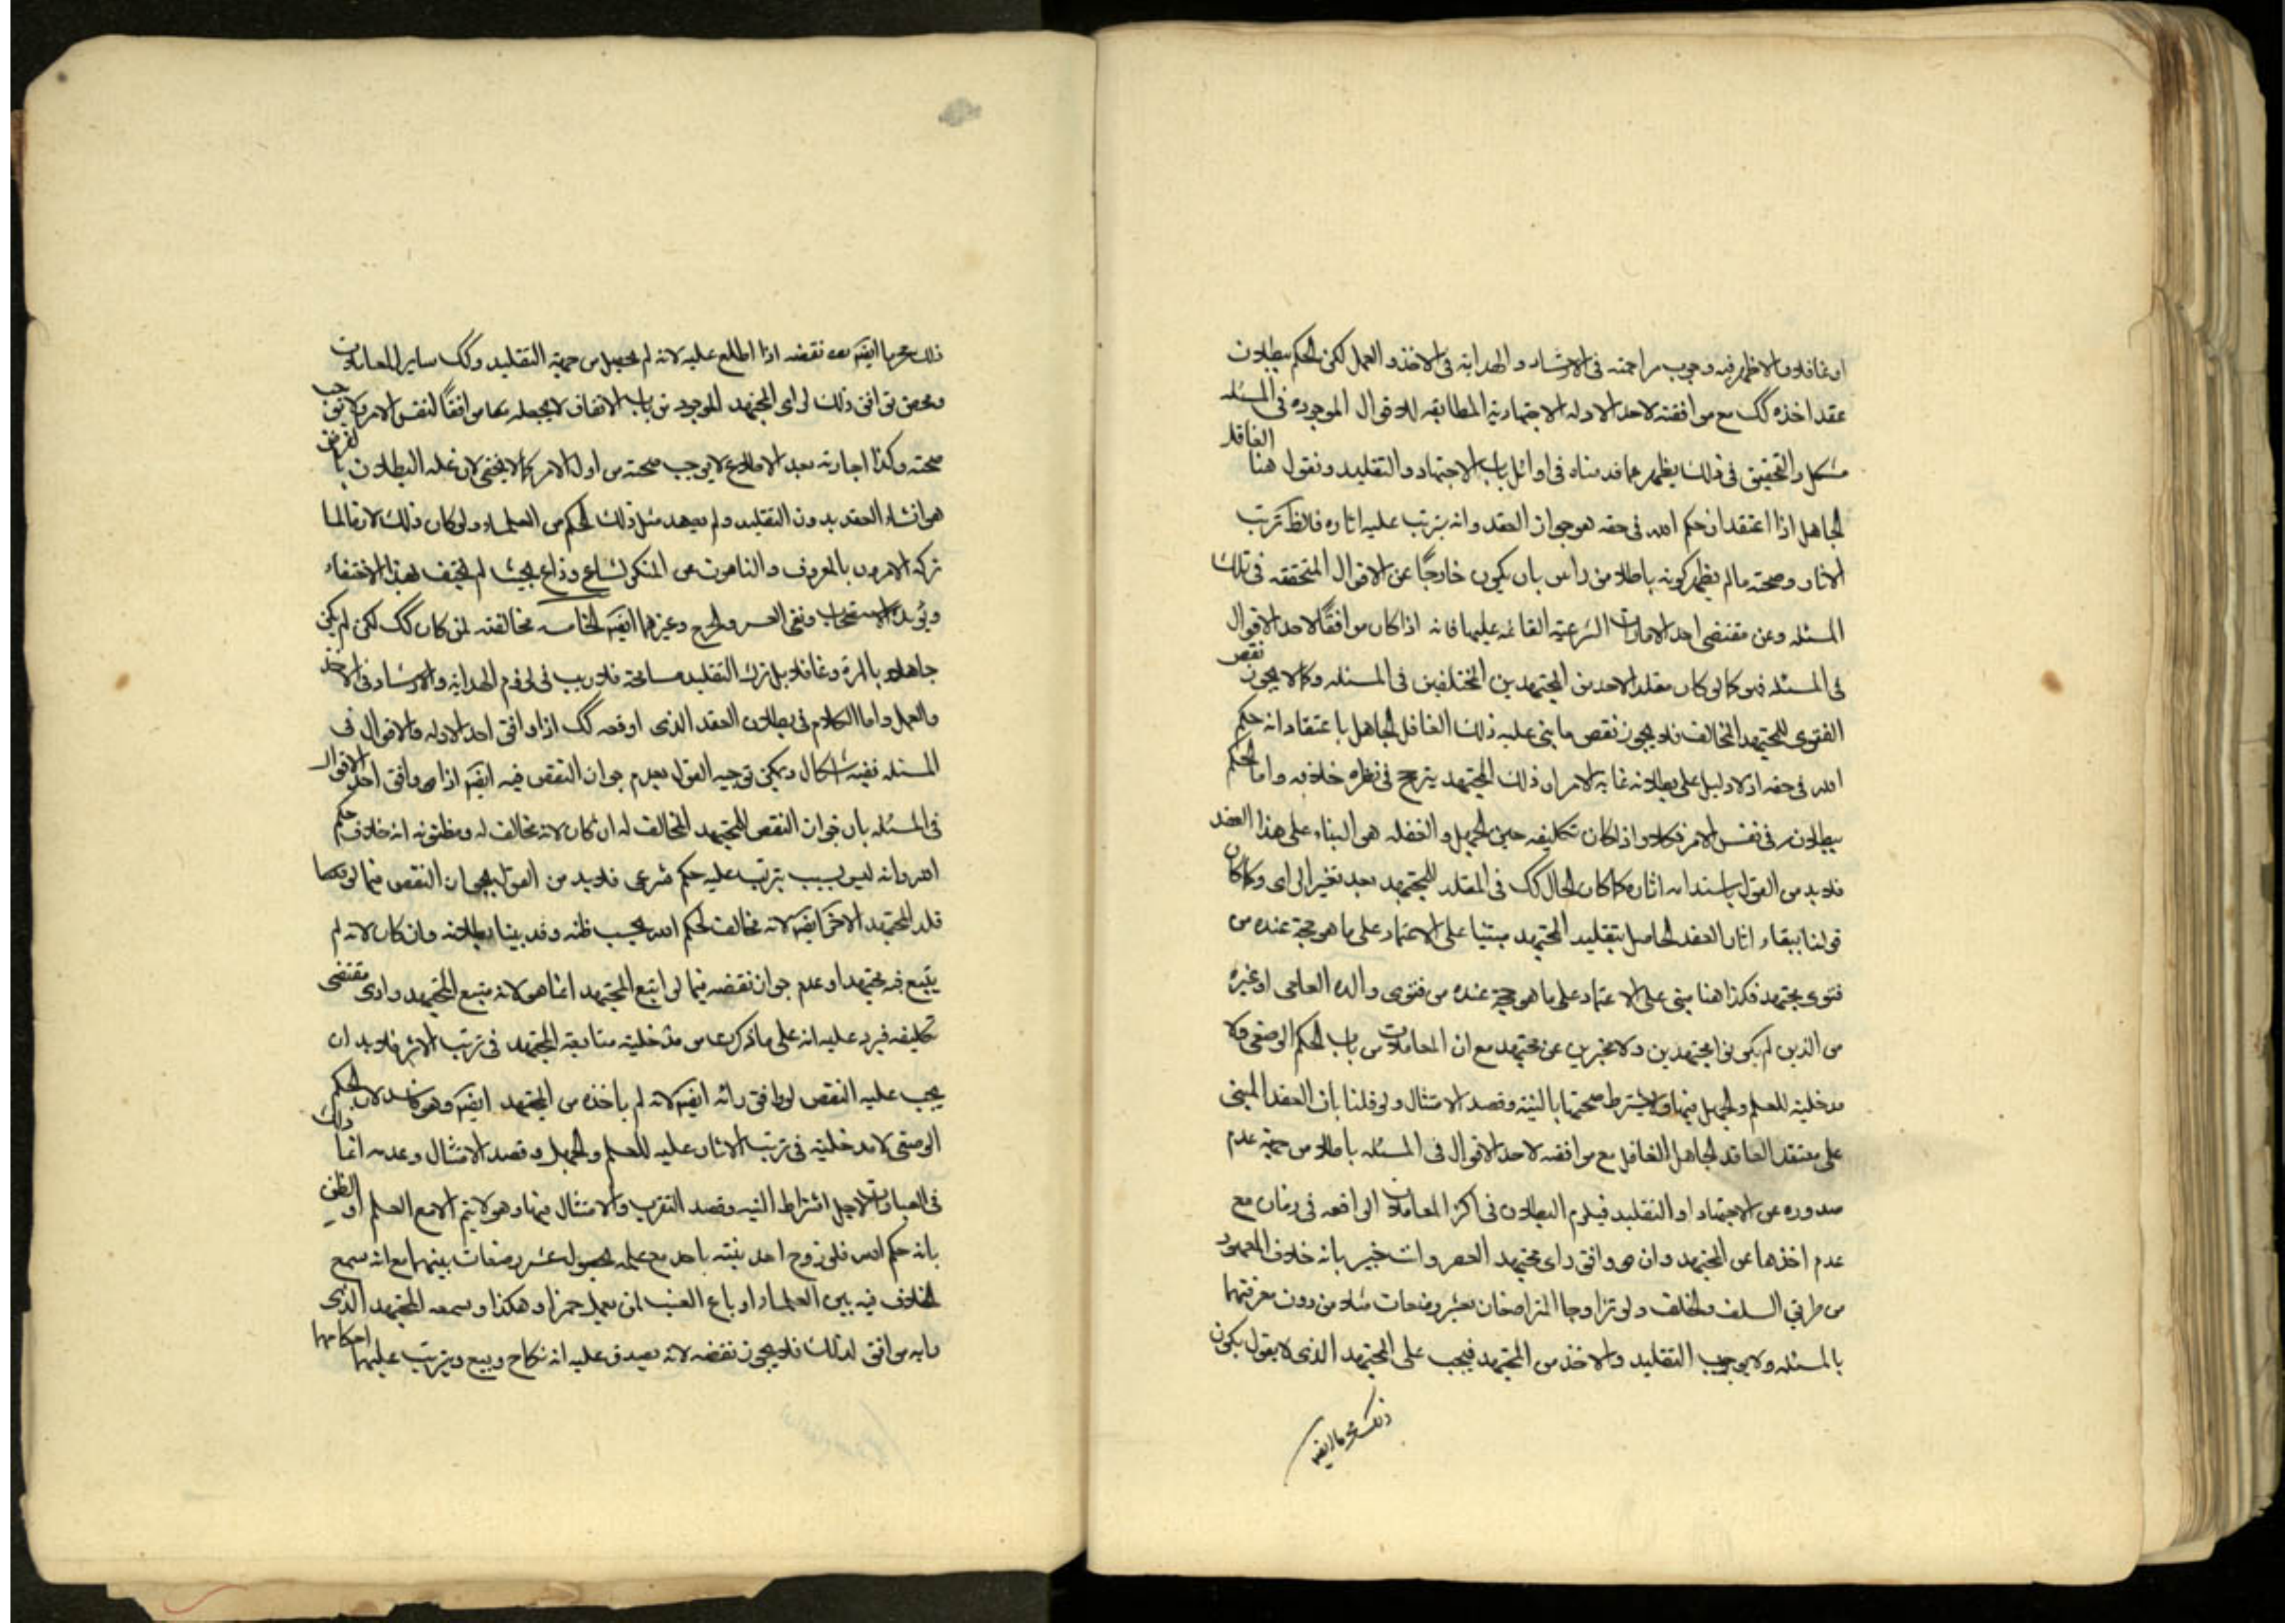 او غافلا فالاظهر فيه وجوب مراجعته فى الارشاد و الهداية فى الاخذ و العمل لكن الحكم ببطلان
عقد اخذه كك مع موافقته لاحد الادله الاجتهادية المطابقه للاقوال الموجوده فى المسئله
مشكل و التحقيق فى ذلك يظهر مما قدمناه فى اوائل باب الاجتهاد و التقليد و نقول هنا الغافل
الجاهل اذا اعتقد ان حكم الله فى حقه هو جواز العقد و انه يترتب عليه اثاره فالظ ترتب
الاثار و صحته ما لم يظهر كونه باطلا من راس بان يكون خارجًا عن الاقوال المتحققه فى تلك
المسئله و عن مقتضى احد الامارات الشرعية القائمه عليها فانه اذا كان موافقًا لاحد الاقوال
فى المسئله فهو كما لو كان مقلدا لاحد من المجتهدين المختلفين فى المسئله و كما لا يجوز نقض
الفتوى للمجتهد المخالف فلا يجوز نقض ما بنى عليه ذلك الغافل الجاهل باعتقاد انه حكم
الله فى حقه اذ لا دليل على بطلانه غاية الامر ان ذلك المجتهد يترجح فى نظره خلافه و اما الحكم
ببطلانه فى نفس الامر فكلا و اذا كان تكليفه حين الجهل و الغفله هو البناء على هذا العقد
فلا بد من القول باستدامه اثاره كما كان الحال كك فى المقلد للمجتهد بعد تغير الراى و كما كان
قولنا ببقاء اثار العقد الحاصل بتقليد المجتهد مبتنيا على الاعتماد على ما هو حجة عنده من
فتوى مجتهد فكذا هنا مبنى على الاعتماد على ما هو حجة عنده من فتوى والده العامى او غيره
من الذين لم يكونوا مجتهدين و لا مخبرين عن مجتهد مع ان المعاملات من باب الحكم الوضعى و لا
مدخلية للعلم و الجهل فيها و لا يشترط صحتها بالنية و قصد الامتثال و لو قلنا بان العقد المبنى
على معتقد العاقد الجاهل الغافل مع موافقه لاحد الاقوال فى المسئله باطلا من جهة عدم
صدوره عن الاجتهاد او التقليد فيلزم البطلان فى اكثر المعاملات الواقعه فى زمان مع
عدم اخذها عن المجتهد و ان هو وافق راى مجتهد العصر و انت خبير بانه خلاف المعهود
من طريقة السلف و الخلف و لو تزاوجا المتراضعان بعشر رضعات مثلا من دون معرفتهما
بالمسئله و لا بوجوب التقليد و الاخذ من المجتهد فيجب على المجتهد الذى لا يقول بكون
ذلك محرما ايضه
ذلك محرما ايضه نقضه اذا اطلع عليه لانه لم يحصل من جهة التقليد و كك ساير المعاملات
و محض توافق ذلك لراى المجتهد الموجود من باب الاتفاق لا يجعله موافقًا لنفس الامر و لا يوجب
صحته و كذا اجازته بعد الاطلاع لا يوجب صحته من اول الامر كما لا يخفى لان علة البطلان بالفرض
هو انشاء العقد بدون التقليد و لم يعهد مثل ذلك الحكم من العلماء و لو كان ذلك لازما لما
تركه الامرون بالمعروف و الناهون عن المنكر لشاع و ذاع بحيث لم يختف هذا الاختفاء
و يؤيده الاستصحاب و نفى العسر و الحرج و غيرهما ايضه الخامسه مخالفته لمن كان كك لكن لم يكن
جاهلا بالمرة و غافلا بل ترك التقليد مسامحة فلا ريب فى لزوم الهداية و الارشاد فى الاخذ
و العمل و اما الكلام فى بطلان العقد الذى اوقعه كك اذا وافق احد الادله و الاقوال فى
المسئله ففيه اشكال و يمكن توجيه القول بعدم جواز النقض فيه ايضه اذا هو وافق احد الاقوال
فى المسئله بان جواز النقض للمجتهد المخالف له ان كان لانه مخالف له و مظنونه انه خلاف حكم
الله و انه ليس بسبب يترتب عليه حكم شرعى فلا بد من القول بجواز النقض فيما لو
قلد المجتهد الاخر ايضه لانه مخالف لحكم الله بحسب ظنه و قد بينا بطلانه و ان كان لانه لم
يتبع فيه مجتهدا و عدم جواز نقضه فيما لو اتبع المجتهد انما هو لانه متبع المجتهد و ادى مقتضى
تكليفه فيرد عليه انه على ما ذكرت من مدخلية متابعة المجتهد فى ترتب الاثر فلا بد ان
يجب عليه النقض لو وافق رائه ايضه لانه لم ياخذه من المجتهد ايضه و هو فاسد لان الحكم
الوضعى لا مدخلية فى ترتب الاثار عليه للعلم و الجهل و قصد الامتثال و عدمه انما ذلك
فى العبادات لاجل اشتراط النيه و قصد التقرب و الامتثال فيها و هو لا يتم الا مع العلم او الظن
بانه حكم الله فلو زوج احد بنته باحد مع علمه بحصول عشر رضعات بينهما مع انه سمع
الخلاف فيه بين العلماء او باع العنب لمن يعمل خمرا و هكذا و سمعه المجتهد الذى
رايه موافق لذلك فلا يجوز نقضه لانه يصدق عليه انه نكاح و بيع و يترتب عليهما احكامهما